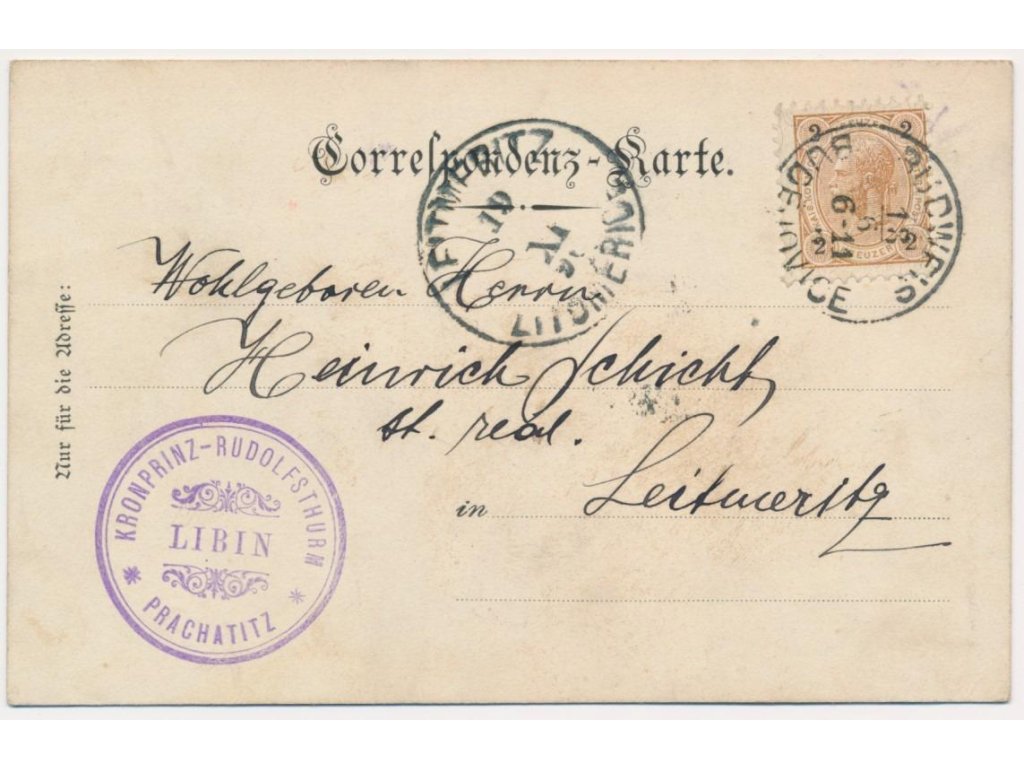 Correspondenz-Karte.
LEITMERITZ
LITOMĚŘICE
2 2
KREUZER
2 2
BUDWEIS
6-11
BUDĚJOVICE
Wohlgeboren Herrn
Heinrich Schicht,
st. real.
in Leitmeritz
Nur für die Adresse:
KRONPRINZ-RUDOLFSTHURM
LIBIN
* PRACHATITZ *